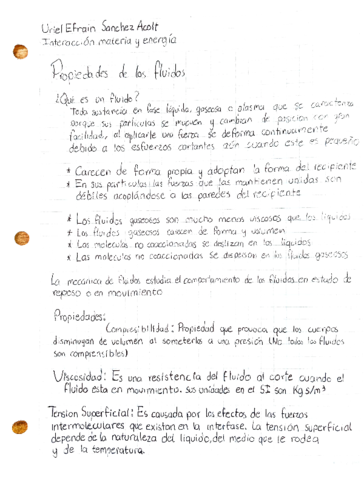 Uriel Efrain Sanchez Acolt
Interacción materia y energía
Propiedades de los fluidos
¿Qué es un fluido?
Toda sustancia en fase líquida, gaseosa o plasma que se caracteriza
porque sus particulas se mueven y cambian de posición con gran
facilidad, al aplicarle una fuerza se deforma continuamente
debido a sus esfuerzos cortantes aún cuando este es pequeño
* Carecen de forma propia y adoptan la forma del recipiente
* En sus particulas las fuerzas que las mantienen unidas son
débiles acoplándose a las paredes del recipiente
* Los fluidos gaseosos son mucho menos viscosos que los liquidos
* Los fluidos gaseosos carecen de forma y volumen
* Las moleculas no coaccionadas se deslizan en los líquidos
* Las moleculas no coaccionadas se dispersan en los fluidos gaseosos
La mecánica de fluidos estudia el comportamiento de los fluidos en estado de
reposo o en movimiento
Propiedades:
Compresibilidad: Propiedad que provoca que los cuerpos
disminuyan de volumen al someterlos a una presión (No todos los fluidos
son compresibles)
Viscosidad: Es una resistencia del fluido al corte cuando el
fluido esta en movimiento. sus unidades en el SI son Kg s/m³
Tension Superficial: Es causada por los efectos de las fuerzas
intermoleculares que existen en la interfase. La tensión superficial
depende de la naturaleza del liquido, del medio que le rodea
y de la temperatura.